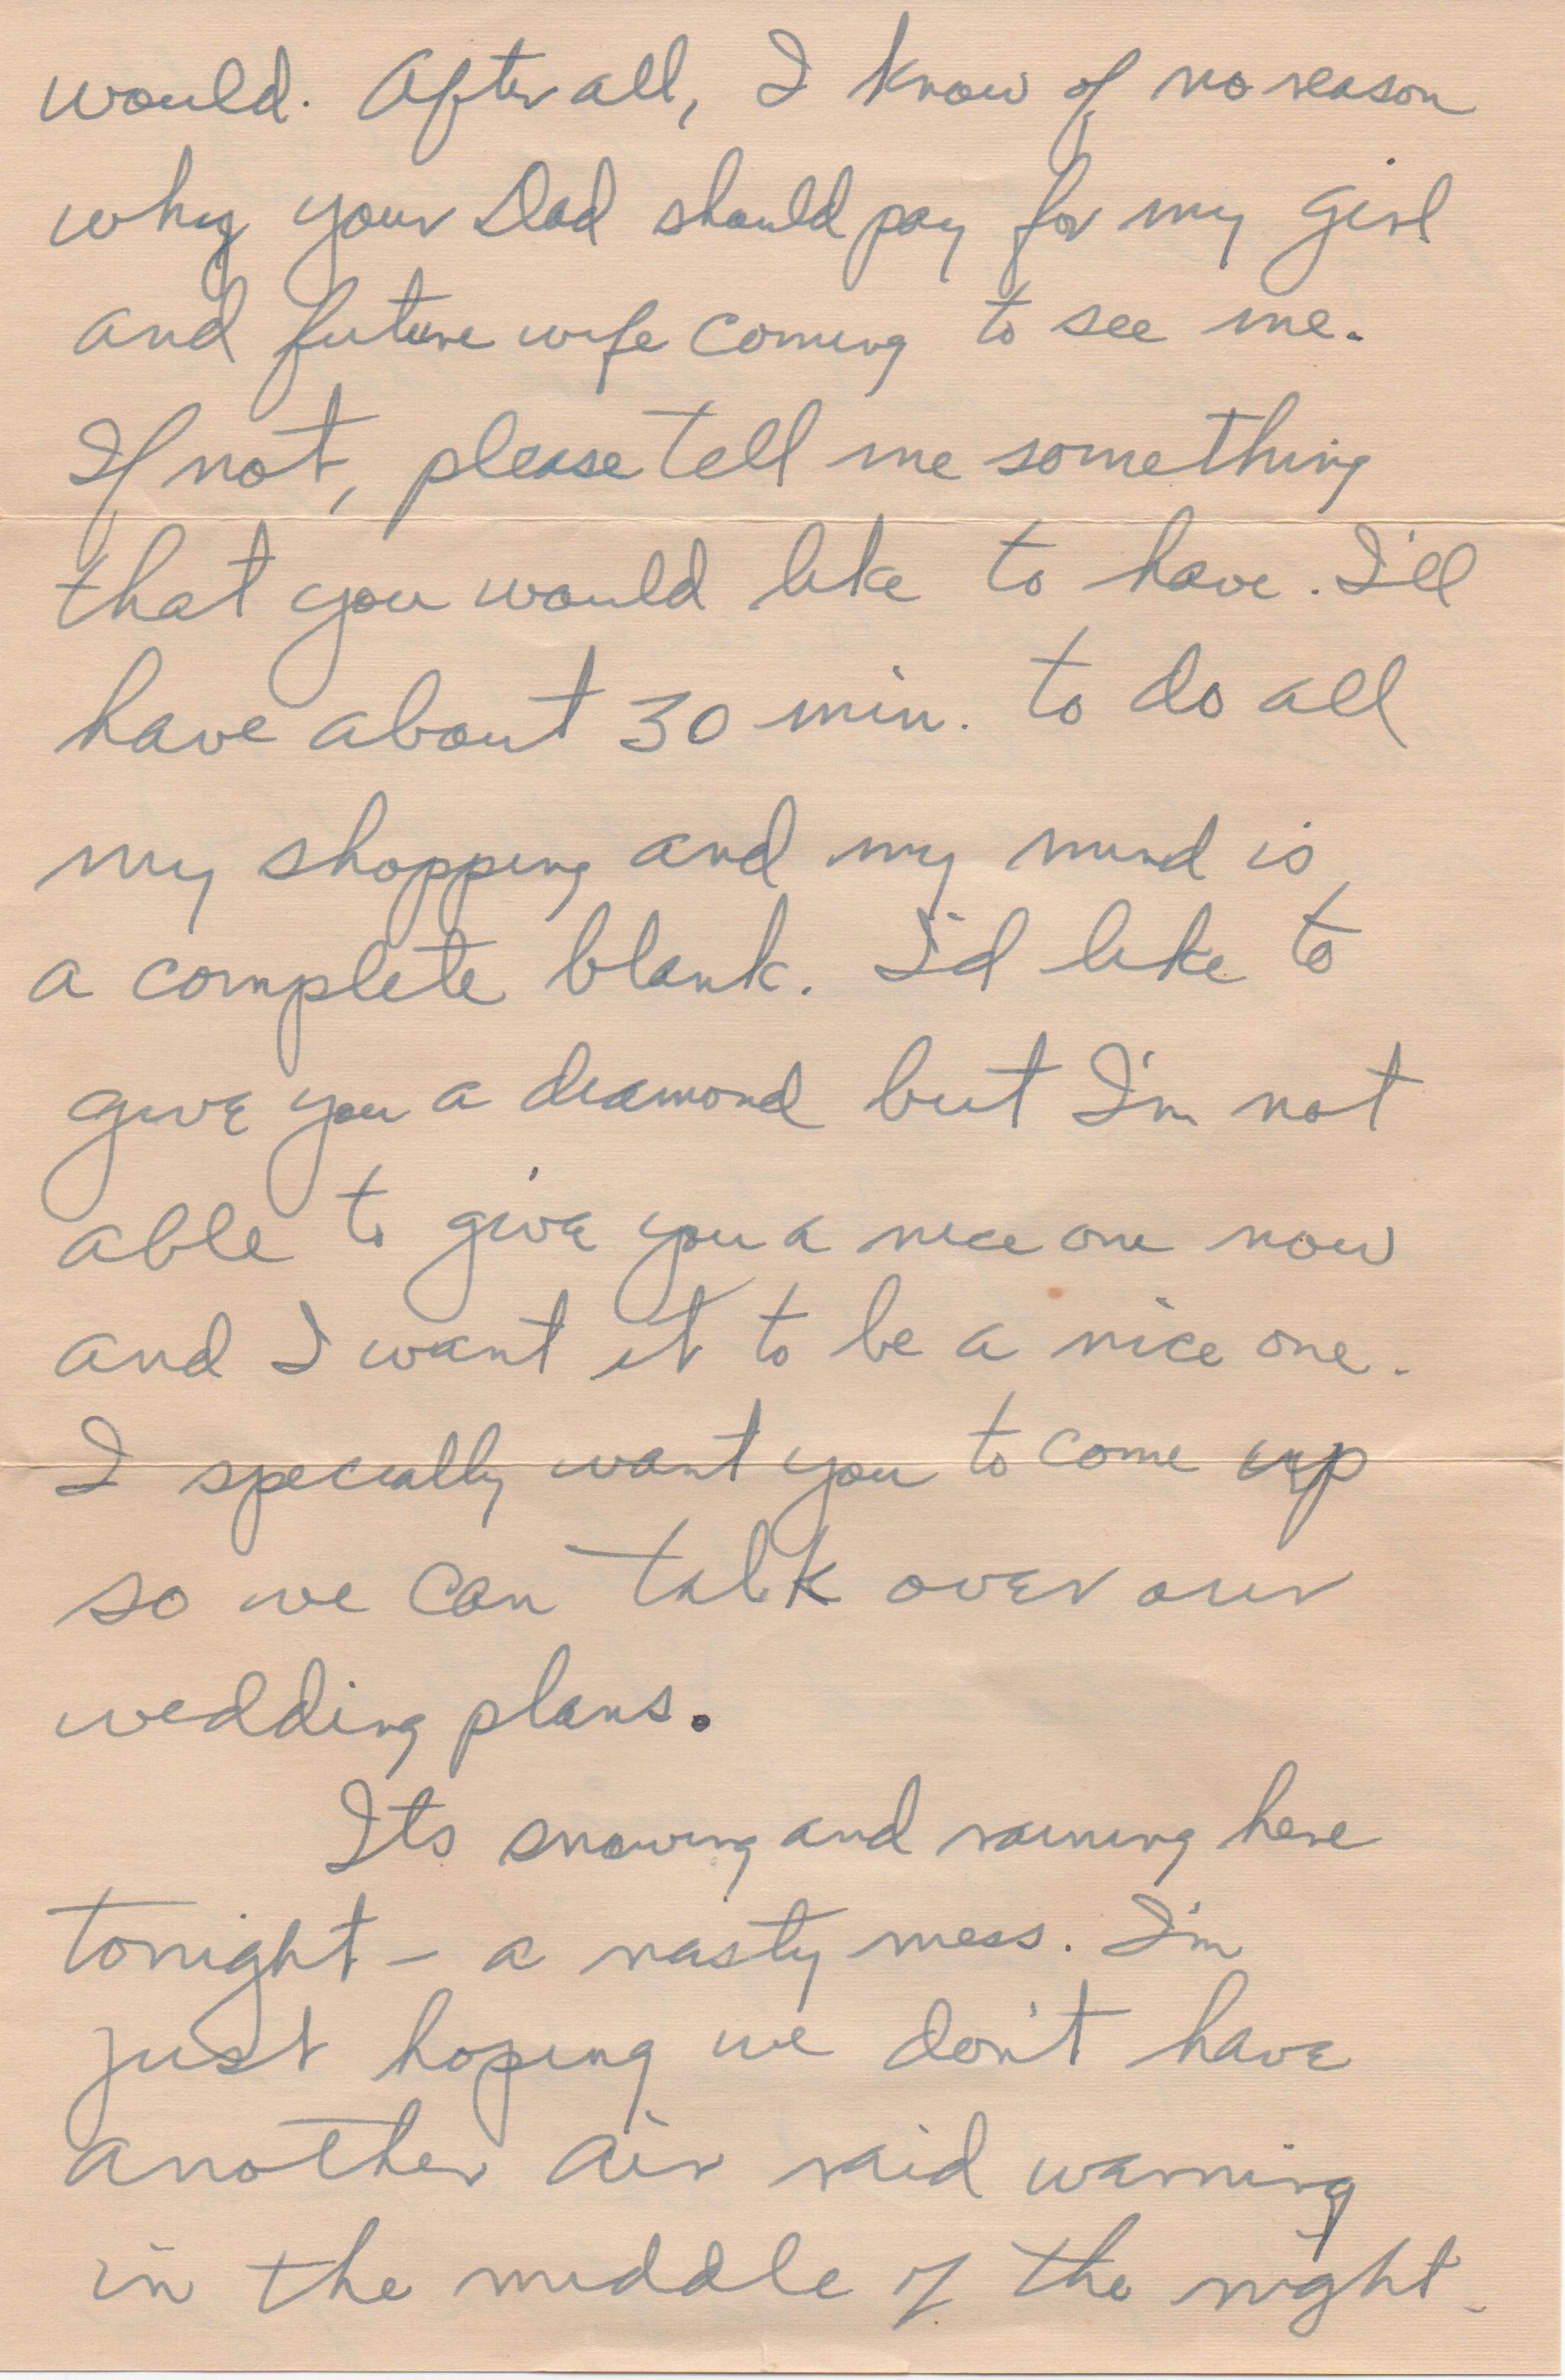 would. After all, I know of no reason
why your Dad should pay for my girl
and future wife coming to see me.
If not, please tell me something
that you would like to have. I'll
have about 30 min. to do all
my shopping and my mind is
a complete blank. I'd like to
give you a diamond but I'm not
able to give you a nice one now
and I want it to be a nice one.
I specially want you to come up
so we can talk over our
wedding plans.
Its snowing and raining here
tonight - a nasty mess. I'm
just hoping we don't have
another air raid warning
in the middle of the night.